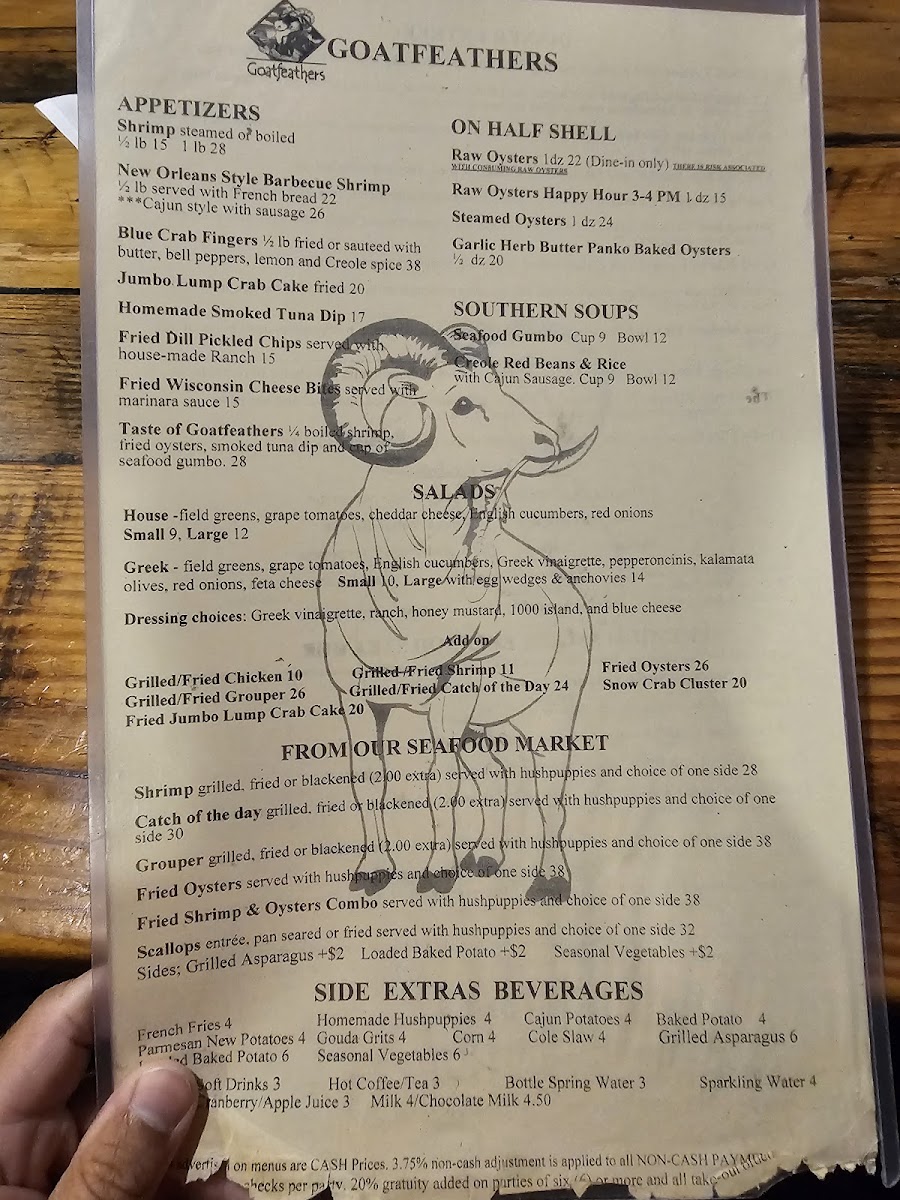 Goatfeathers
GOATFEATHERS
APPETIZERS
Shrimp steamed or boiled
½ lb 15 1 lb 28
New Orleans Style Barbecue Shrimp
½ lb served with French bread 22
***Cajun style with sausage 26
Blue Crab Fingers ½ lb fried or sauteed with
butter, bell peppers, lemon and Creole spice 38
Jumbo Lump Crab Cake fried 20
Homemade Smoked Tuna Dip 17
Fried Dill Pickled Chips served with
house-made Ranch 15
Fried Wisconsin Cheese Bites served with
marinara sauce 15
Taste of Goatfeathers ¼ boiled shrimp,
fried oysters, smoked tuna dip and cup of
seafood gumbo. 28
ON HALF SHELL
Raw Oysters 1dz 22 (Dine-in only) THERE IS RISK ASSOCIATED
WITH CONSUMING RAW OYSTERS
Raw Oysters Happy Hour 3-4 PM 1 dz 15
Steamed Oysters 1 dz 24
Garlic Herb Butter Panko Baked Oysters
½ dz 20
SOUTHERN SOUPS
Seafood Gumbo Cup 9 Bowl 12
Creole Red Beans & Rice
with Cajun Sausage. Cup 9 Bowl 12
SALADS
House -field greens, grape tomatoes, cheddar cheese, English cucumbers, red onions
Small 9, Large 12
Greek - field greens, grape tomatoes, English cucumbers, Greek vinaigrette, pepperoncinis, kalamata
olives, red onions, feta cheese Small 10, Large with egg wedges & anchovies 14
Dressing choices: Greek vinaigrette, ranch, honey mustard, 1000 island, and blue cheese
Add on
Grilled/Fried Chicken 10 Grilled /Fried Shrimp 11 Fried Oysters 26
Grilled/Fried Grouper 26 Grilled/Fried Catch of the Day 24 Snow Crab Cluster 20
Fried Jumbo Lump Crab Cake 20
FROM OUR SEAFOOD MARKET
Shrimp grilled, fried or blackened (2.00 extra) served with hushpuppies and choice of one side 28
Catch of the day grilled, fried or blackened (2.00 extra) served with hushpuppies and choice of one
side 30
Grouper grilled, fried or blackened (2.00 extra) served with hushpuppies and choice of one side 38
Fried Oysters served with hushpuppies and choice of one side 38
Fried Shrimp & Oysters Combo served with hushpuppies and choice of one side 38
Scallops entrée, pan seared or fried served with hushpuppies and choice of one side 32
Sides; Grilled Asparagus +$2 Loaded Baked Potato +$2 Seasonal Vegetables +$2
SIDE EXTRAS BEVERAGES
French Fries 4 Homemade Hushpuppies 4 Cajun Potatoes 4 Baked Potato 4
Parmesan New Potatoes 4 Gouda Grits 4 Corn 4 Cole Slaw 4 Grilled Asparagus 6
Baked Potato 6 Seasonal Vegetables 6
Soft Drinks 3 Hot Coffee/Tea 3 Bottle Spring Water 3 Sparkling Water 4
Cranberry/Apple Juice 3 Milk 4/Chocolate Milk 4.50
on menus are CASH Prices. 3.75% non-cash adjustment is applied to all NON-CASH
checks per party. 20% gratuity added on parties of six (6) or more and all take-out